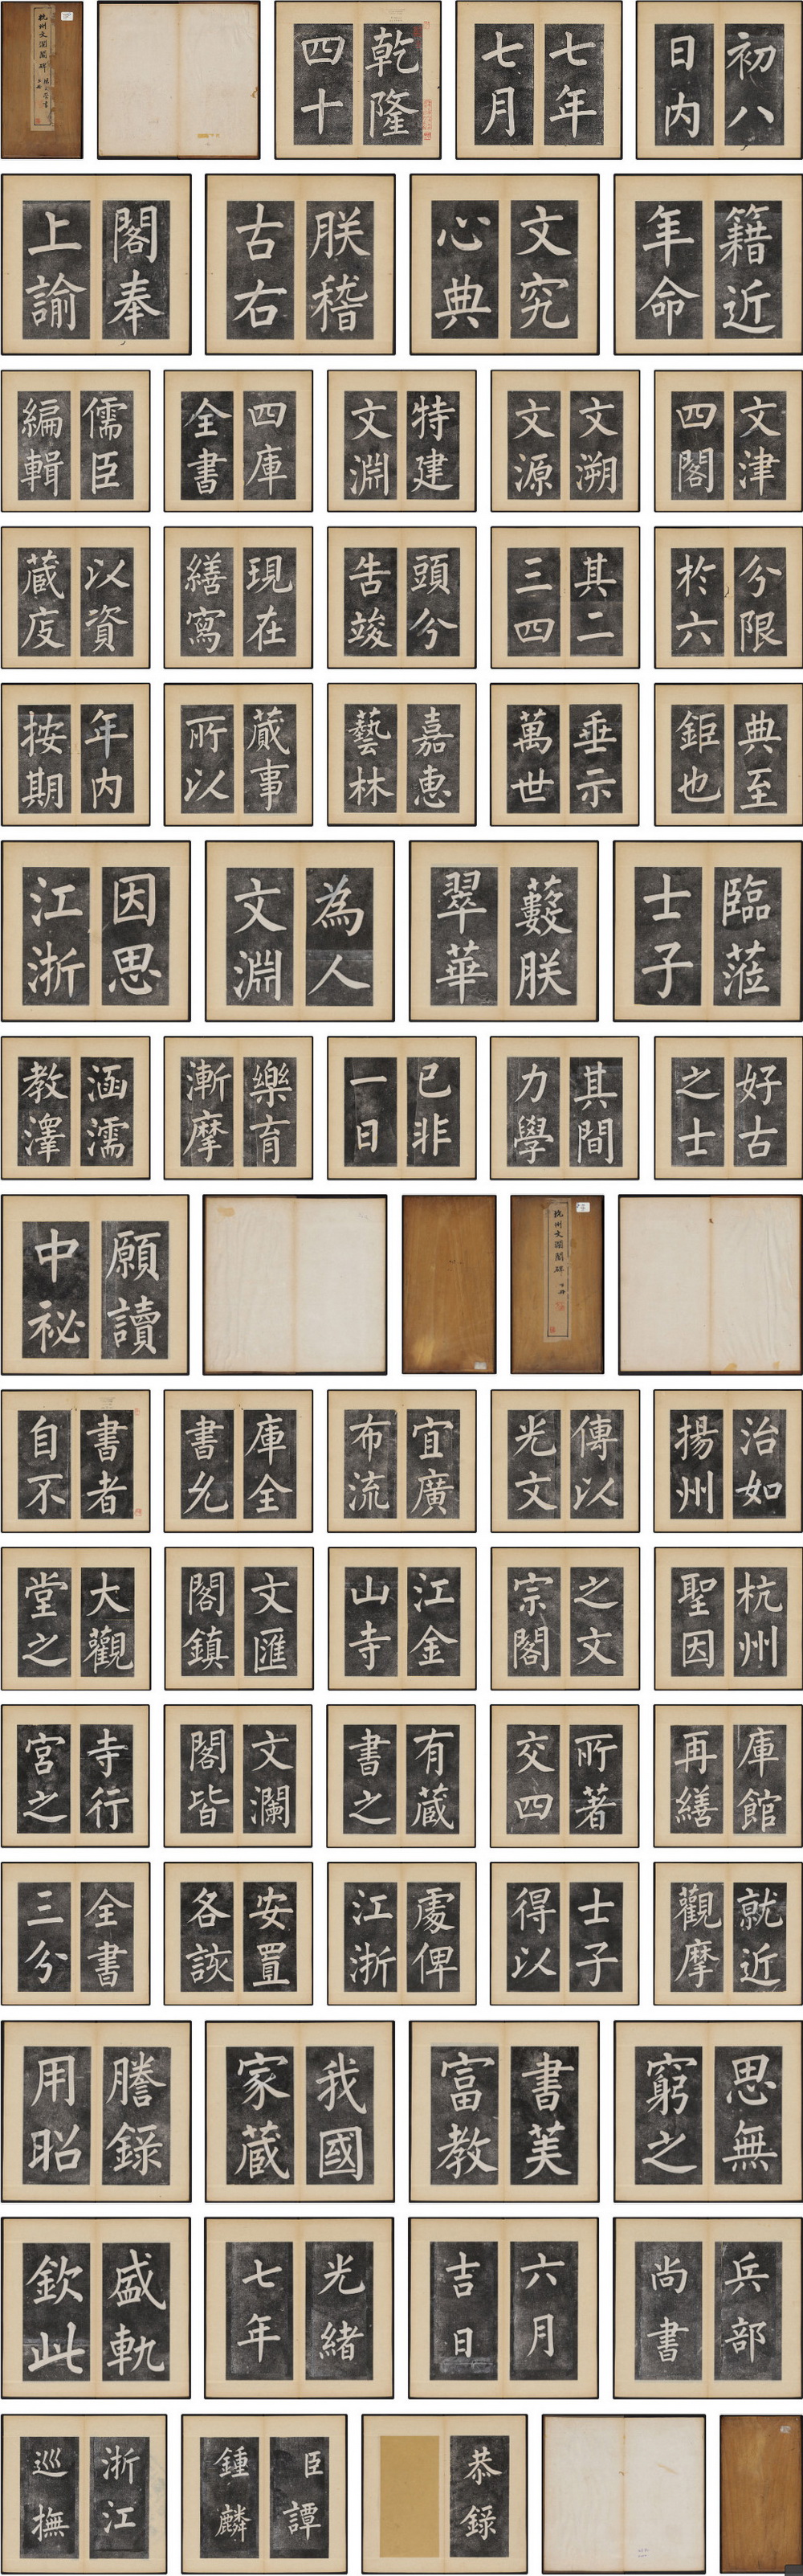 杭州文瀾閣碑
乾隆
四十
七年
七月
初八
日内
閣奉
上諭
朕稽
古右
文究
心典
籍近
年命
儒臣
編輯
四庫
全書
特建
文淵
文溯
文源
文津
四閣
以資
藏庋
現在
繕寫
頭分
告竣
其二
三四
分限
於六
年内
按期
蕆事
所以
嘉惠
藝林
垂示
萬世
典至
鉅也
因思
江浙
為人
文淵
藪朕
翠華
臨蒞
士子
涵濡
教澤
樂育
漸摩
已非
一日
其間
力學
好古
之士
願讀
中祕
杭州文瀾閣碑 下冊
書者
自不
庫全
書允
宜廣
布流
傳以
光文
治如
揚州
大觀
堂之
文匯
閣鎮
江金
山寺
之文
宗閣
杭州
聖因
寺行
宮之
文瀾
閣皆
有藏
書之
所著
交四
庫館
再繕
全書
三分
安置
各該
處俾
江浙
士子
得以
就近
觀摩
謄錄
用昭
我國
家藏
書美
富教
思無
窮之
盛軌
欽此
光緒
七年
六月
吉日
兵部
尚書
浙江
巡撫
臣譚
鍾麟
恭錄